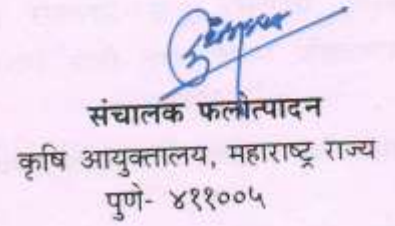 संचालक फलोत्पादन
कृषि आयुक्तालय, महाराष्ट्र राज्य
पुणे- ४११००५